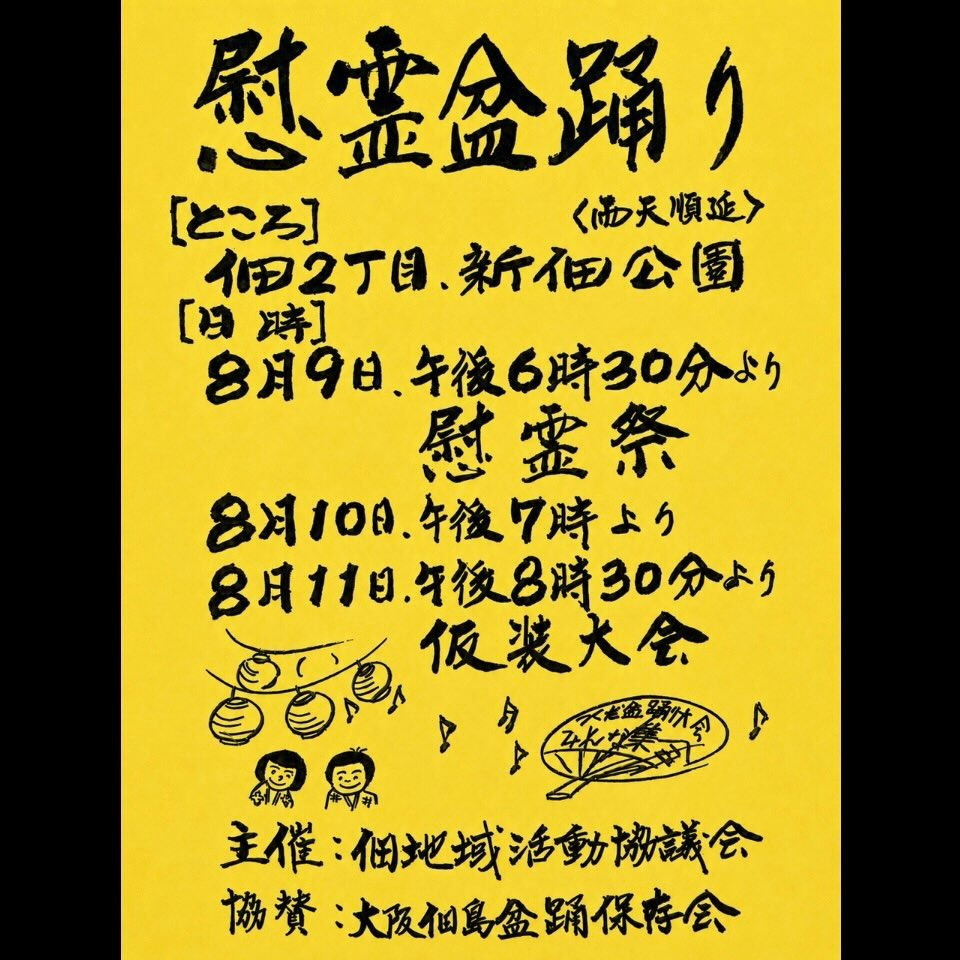 慰霊盆踊り
[ところ]
〈雨天順延〉
佃2丁目.新佃公園
[日時]
8月9日.午後6時30分より
慰霊祭
8月10日.午後7時より
8月11日.午後8時30分より
仮装大会
盆踊り大会
みんな集
主催:佃地域活動協議会
協賛:大阪佃島盆踊保存会